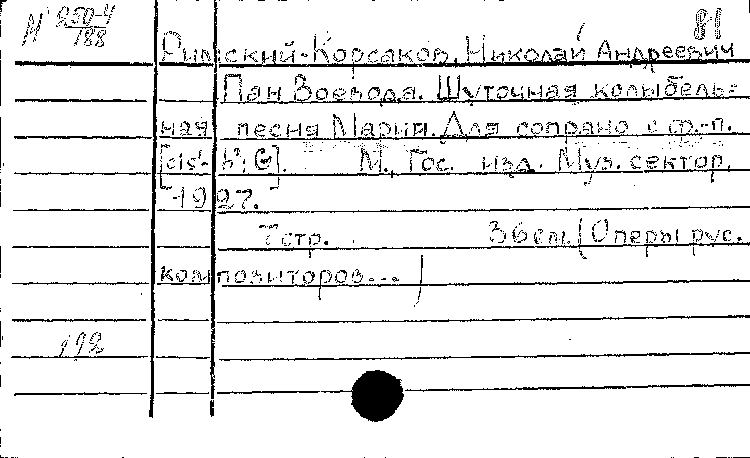 М 250-4
188
81
Римский-Корсаков, Николай Андреевич
Пан Воевода. Шуточная колыбель=
ная песня Марии. Для сопрано с ф.-п.
[cis¹- h²; G]. М., Гос. изд. Муз. сектор,
1927.
7 стр. 36 см. (Оперы рус.
композиторов...)
192